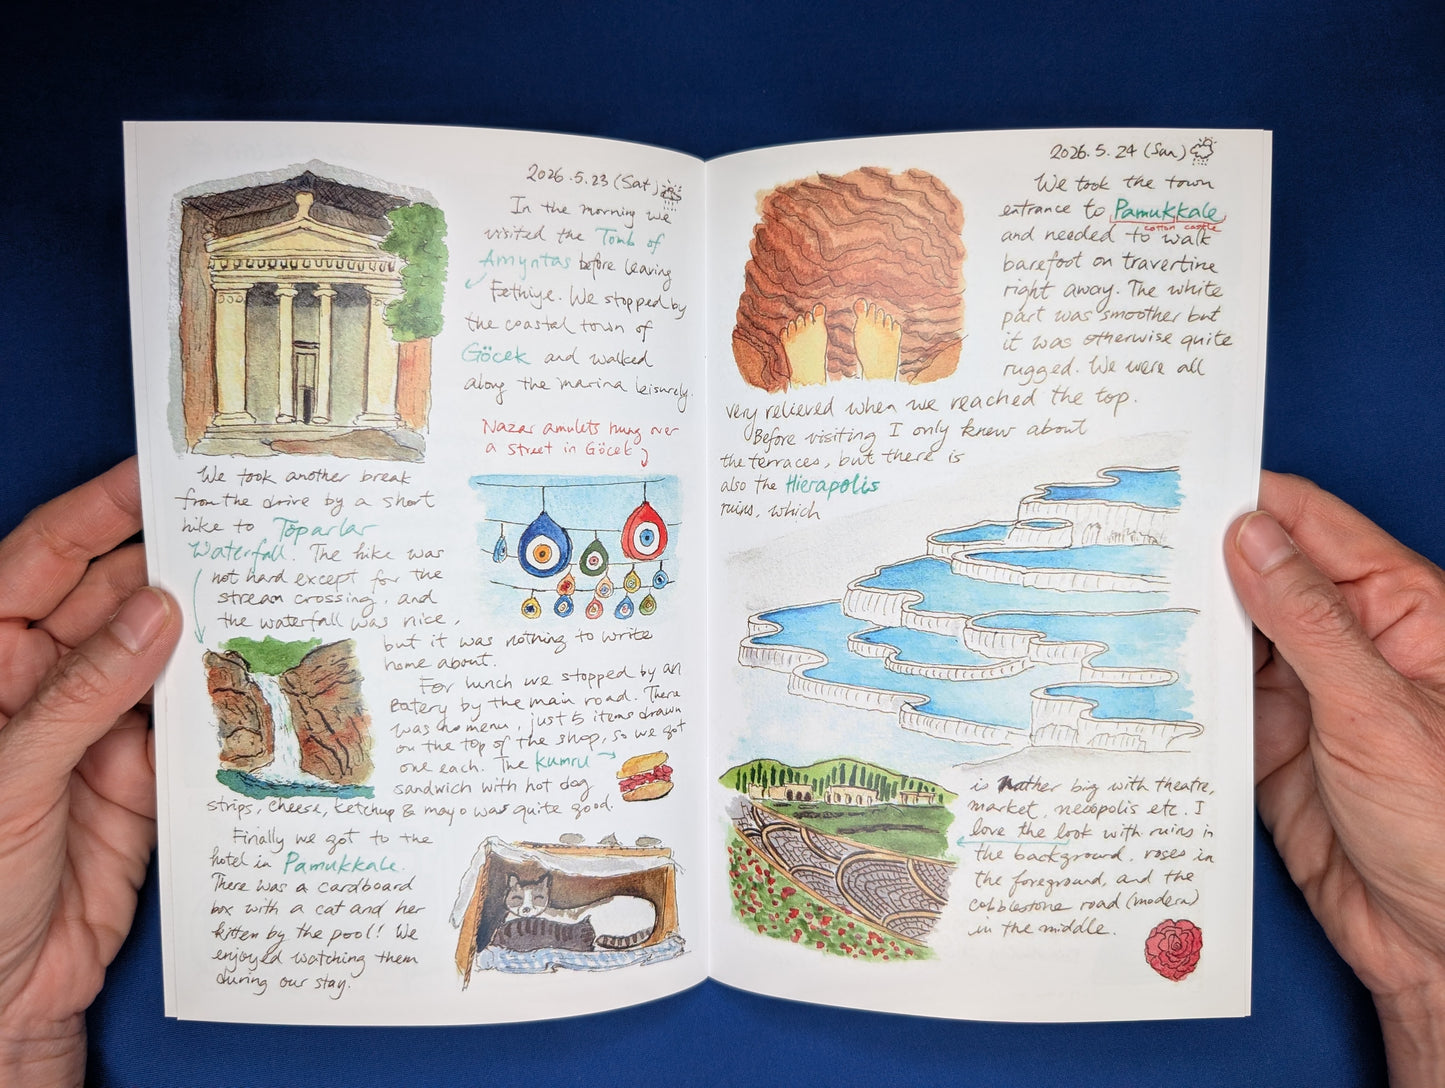 2026.5.23 (Sat)
In the morning we
visited the Tomb of
Amyntas before leaving
Fethiye. We stopped by
the coastal town of
Göcek and walked
along the marina leisurely.
Nazar amulets hung over
a street in Göcek
We took another break
from the drive by a short
hike to Toparlar
Waterfall. The hike was
not hard except for the
stream crossing, and
the waterfall was nice,
but it was nothing to write
home about.
For lunch we stopped by an
eatery by the main road. There
was no menu, just 5 items drawn
on the top of the shop, so we got
one each. The kumru
sandwich with hot dog
strips, cheese, ketchup & mayo was quite good.
Finally we got to the
hotel in Pamukkale.
There was a cardboard
box with a cat and her
kitten by the pool! We
enjoyed watching them
during our stay.
2026.5.24 (Sun)
We took the town
entrance to Pamukkale
cotton castle
and needed to walk
barefoot on travertine
right away. The white
part was smoother but
it was otherwise quite
rugged. We were all
very relieved when we reached the top.
Before visiting I only knew about
the terraces, but there is
also the Hierapolis
ruins, which
is rather big with theatre,
market, necopolis etc. I
love the look with ruins in
the background, roses in
the foreground, and the
cobblestone road (modern)
in the middle.